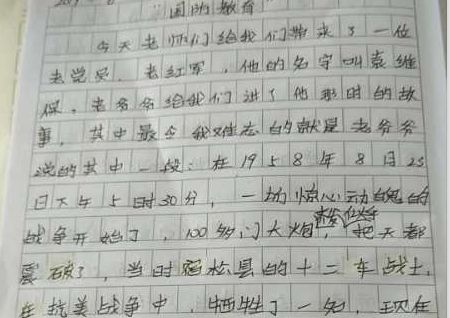 国防教育
今天老师们给我们带来了一位
老党员，老红军，他的名字叫袁维
保，老爷爷给我们讲了他那时的故
事，其中最令我难忘的就是老爷爷
说的其中一段：在1958年8月23
日下午5时30分，一场惊心动魄的
战争开始了，100多门大炮，把天都
震破了，当时宿松县的十二车战士，
在抗美战争中，牺牲了一名，现在